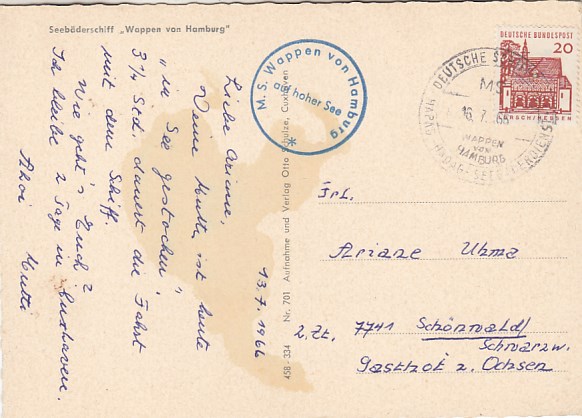 Seebäderschiff „Wappen von Hamburg"
Liebe Ariane,
Deine Mutti ist heute
„in See gestochen",
3¼ Std. dauert die Fahrt
mit dem Schiff.
Wie geht's Euch?
Ich bleibe 2 Tage in Cuxhaven.
Ahoi
Mutti
13.7.1966
458-334 Nr. 701 Aufnahme und Verlag Otto Schulze, Cuxhaven
M.S. Wappen von Hamburg
auf hoher See
DEUTSCHE BUNDESPOST
20
LORSCH/HESSEN
DEUTSCHE
MS
16.7.66
WAPPEN
VON
HAMBURG
Frl.
Ariane Uhma
z.Zt. 7741 Schönwald/
Schwarzw.
Gasthof z. Ochsen